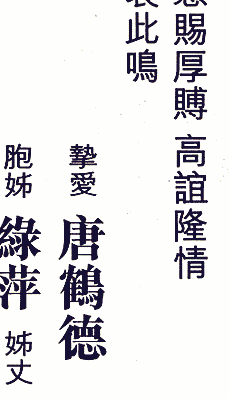 賜厚賻 高誼隆情
此鳴
摯愛 唐鶴德
胞姊 綠萍 姊丈